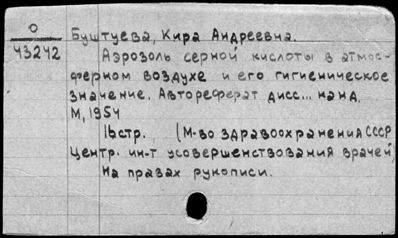 О
43242
Буштуева, Кира Андреевна.
Аэрозоль серной кислоты в атмос-
ферном воздухе и его гигиеническое
значение. Автореферат дисс... канд.
М, 1954
16стр. (М-во здравоохранения СССР
Центр. ин-т усовершенствования врачей)
На правах рукописи.